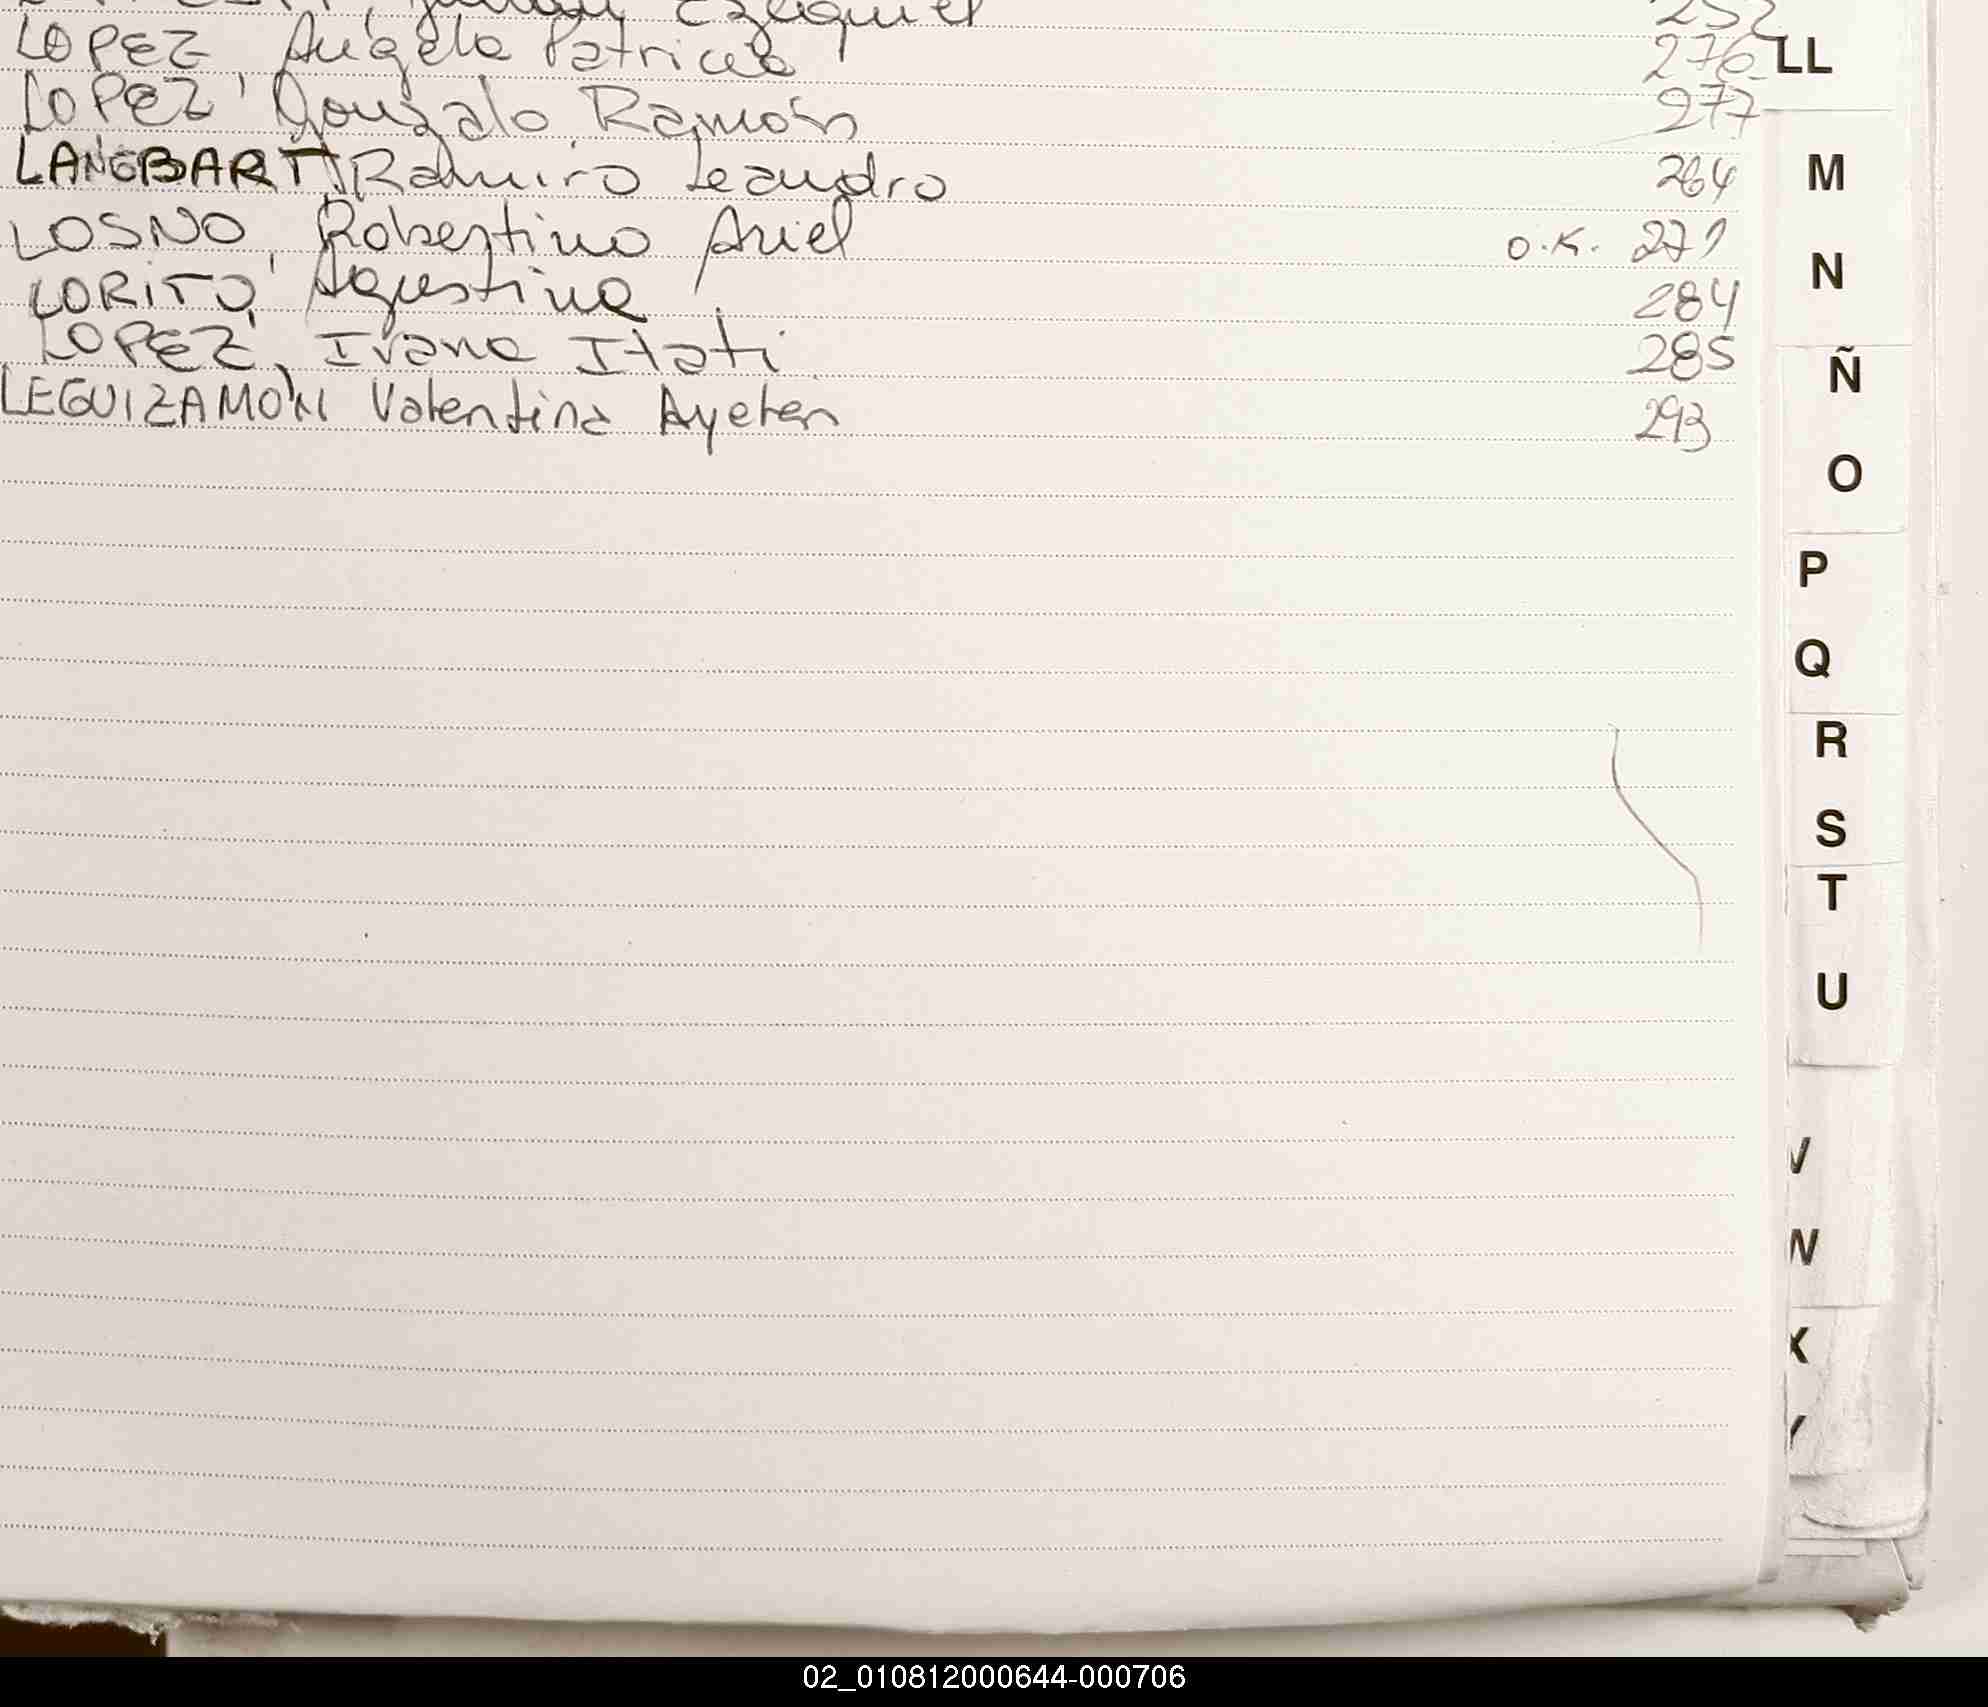 Ezequiel 252
LOPEZ Angela Patricia 276
LOPEZ, Gonzalo Ramón 277
LANGBART, Ramiro Leandro 264
LOSNO, Robertino Ariel O.K. 271
LORITO, Agustina 284
LOPEZ, Ivana Itati 285
LEGUIZAMON Valentina Ayelen 293
LL
M
N
Ñ
O
P
Q
R
S
T
U
V
W
X
Y
02_010812000644-000706